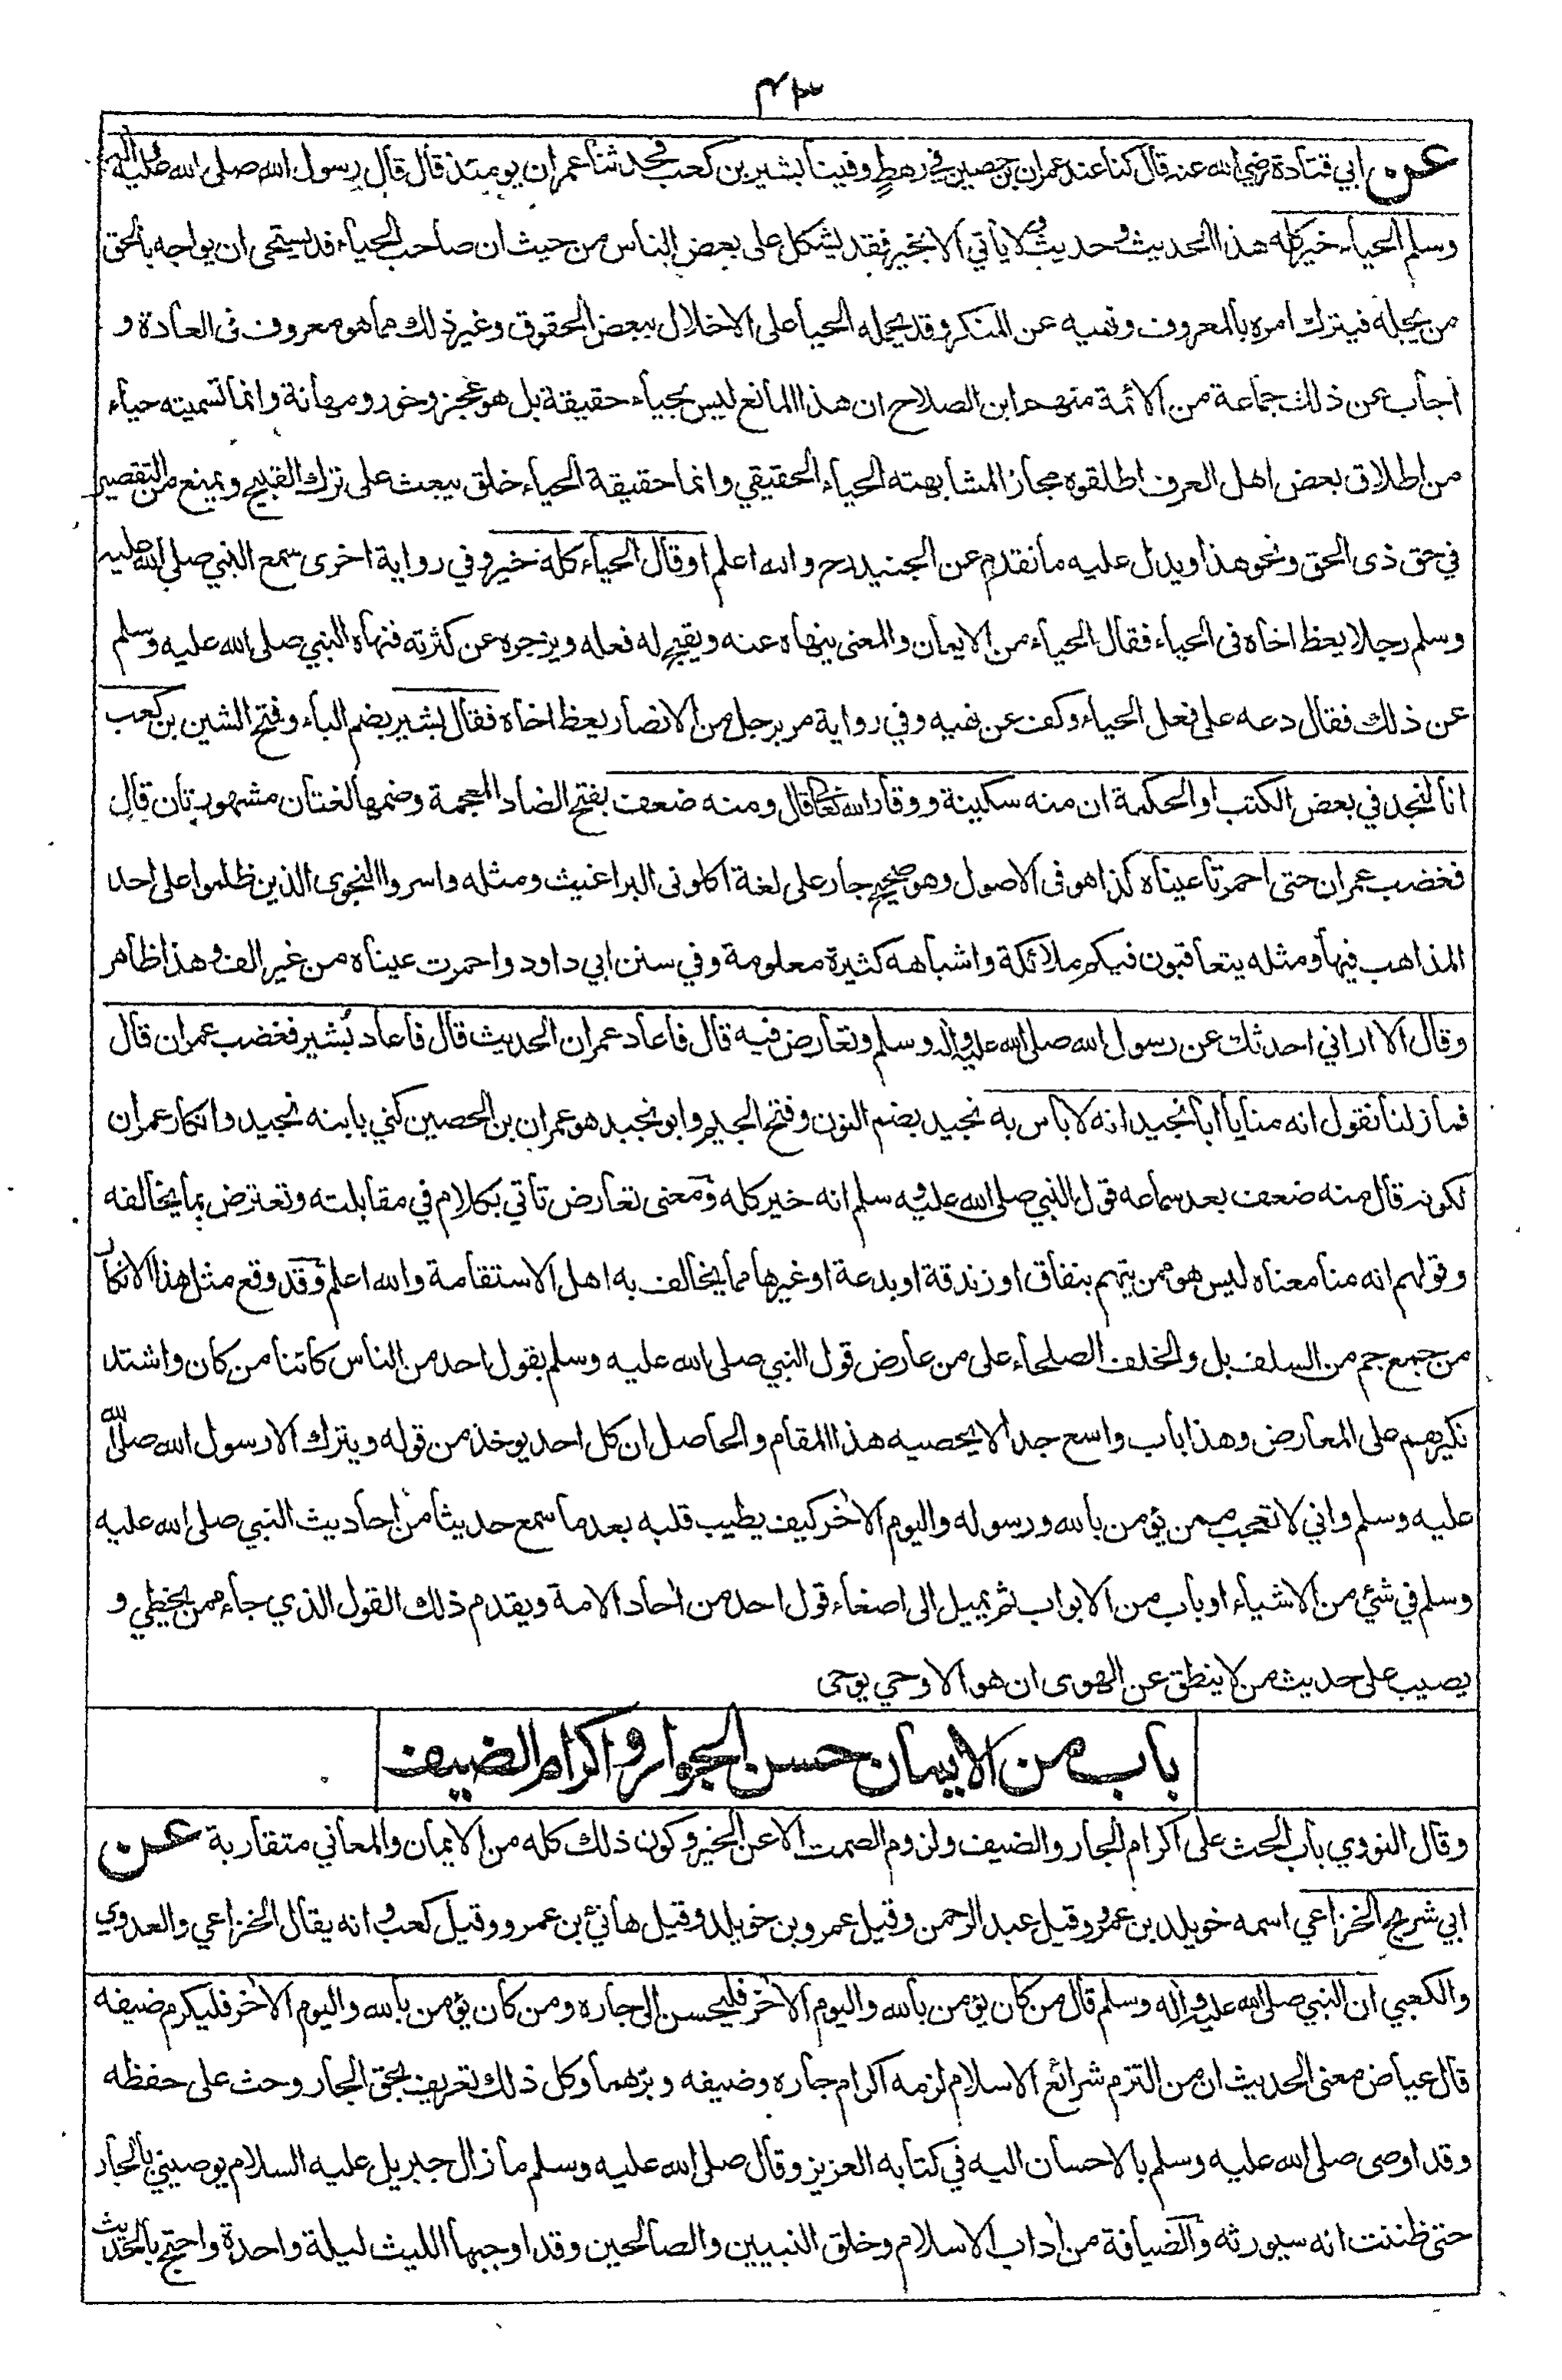 ٤٣
عن ابي قتادة رضي الله عنه قال كنا عند عمران بن حصين في رهط وفينا بشير بن كعب فحدثنا عمران يومئذ قال قال رسول الله صلى الله عليه واله
وسلم الحياء خير كله هذا الحديث وحديث لا يأتي الا بخير فقد يشكل على بعض الناس من حيث ان صاحب الحياء قد يستحى ان يواجه بالحق
من يجله فيترك امره بالمعروف ونهيه عن المنكر وقد يحمله الحياء على الاخلال ببعض الحقوق وغير ذلك مما هو معروف فى العادة و
اجاب عن ذلك جماعة من الائمة منهم ابن الصلاح ان هذا المانع ليس بحياء حقيقة بل هو عجز وخور ومهانة وانما تسميته حياء
من اطلاق بعض اهل العرف اطلقوه مجازا لمشابهته الحياء الحقيقي وانما حقيقة الحياء خلق يبعث على ترك القبيح ويمنع من التقصير
في حق ذى الحق ونحو هذا ويدل عليه ما تقدم عن الجنيد رح والله اعلم او قال الحياء كله خير وفي رواية اخرى سمع النبي صلى الله عليه
وسلم رجلا يعظ اخاه فى الحياء فقال الحياء من الايمان والمعنى ينهاه عنه ويقبح له فعله ويزجره عن كثرته فنهاه النبي صلى الله عليه وسلم
عن ذلك فقال دعه على فعل الحياء وكف عن نهيه وفي رواية مر برجل من الانصار يعظ اخاه فقال بشير بضم الباء وفتح الشين بن كعب
انا لنجد في بعض الكتب او الحكمة ان منه سكينة ووقارا لله تعالى قال ومنه ضعف بفتح الضاد المعجمة وضمها لغتان مشهورتان قال
فغضب عمران حتى احمرتا عيناه كذا هو فى الاصول وهو صحيح جار على لغة اكلونى البراغيث ومثله واسروا النجوى الذين ظلموا على احد
المذاهب فيها ومثله يتعاقبون فيكم ملائكة واشباهه كثيرة معلومة وفي سنن ابي داود واحمرت عيناه من غير الف وهذا ظاهر
وقال الا اراني احدثك عن رسول الله صلى الله عليه واله وسلم وتعارض فيه قال فاعاد عمران الحديث قال فاعاد بُشير فغضب عمران قال
فما زلنا نقول انه منا يا ابا نجيد انه لا باس به نجيد بضم النون وفتح الجيم وابو نجيد هو عمران بن الحصين كني بابنه نجيد وانكار عمران
لكونه قال منه ضعف بعد سماعه قول النبي صلى الله عليه وسلم انه خير كله ومعنى تعارض تأتي بكلام في مقابلته وتعترض بما يخالفه
وقولهم انه منا معناه ليس هو ممن يتهم بنفاق او زندقة او بدعة او غيرها مما يخالف به اهل الاستقامة والله اعلم وقد وقع مثل هذا الانكار
من جمع جم من السلف بل والخلف الصلحاء على من عارض قول النبي صلى الله عليه وسلم بقول احد من الناس كائنا من كان واشتد
نكيرهم على المعارض وهذا باب واسع جدا لا يحصيه هذا المقام والحاصل ان كل احد يوخذ من قوله ويترك الا رسول الله صلى الله
عليه وسلم واني لا تعجب ممن يؤمن بالله ورسوله واليوم الآخر كيف يطيب قلبه بعد ما سمع حديثا من احاديث النبي صلى الله عليه
وسلم في شئ من الاشياء او باب من الابواب ثم يميل الى اصغاء قول احد من آحاد الامة ويقدم ذلك القول الذي جاء ممن يخطي و
يصيب على حديث من لا ينطق عن الهوى ان هو الا وحي يوحى
باب من الايمان حسن الجوار واكرام الضيف
وقال النووي باب الحث على اكرام الجار والضيف ولزوم الصمت الا عن الخير وكون ذلك كله من الايمان والمعاني متقاربة عن
ابي شريح الخزاعي اسمه خويلد بن عمرو وقيل عبد الرحمن وقيل عمرو بن خويلد وقيل هانئ بن عمرو وقيل كعب وانه يقال الخزاعي والعدوي
والكعبي ان النبي صلى الله عليه واله وسلم قال من كان يؤمن بالله واليوم الآخر فليحسن الى جاره ومن كان يؤمن بالله واليوم الآخر فليكرم ضيفه
قال عياض معنى الحديث ان من التزم شرائع الاسلام لزمه اكرام جاره وضيفه وبرهما وكل ذلك تعريف بحق الجار وحث على حفظه
وقد اوصى صلى الله عليه وسلم بالاحسان اليه في كتابه العزيز وقال صلى الله عليه وسلم ما زال جبريل عليه السلام يوصيني بالجار
حتى ظننت انه سيورثه والضيافة من آداب الاسلام وخلق النبيين والصالحين وقد اوجبها الليث ليلة واحدة واحتج بالحديث